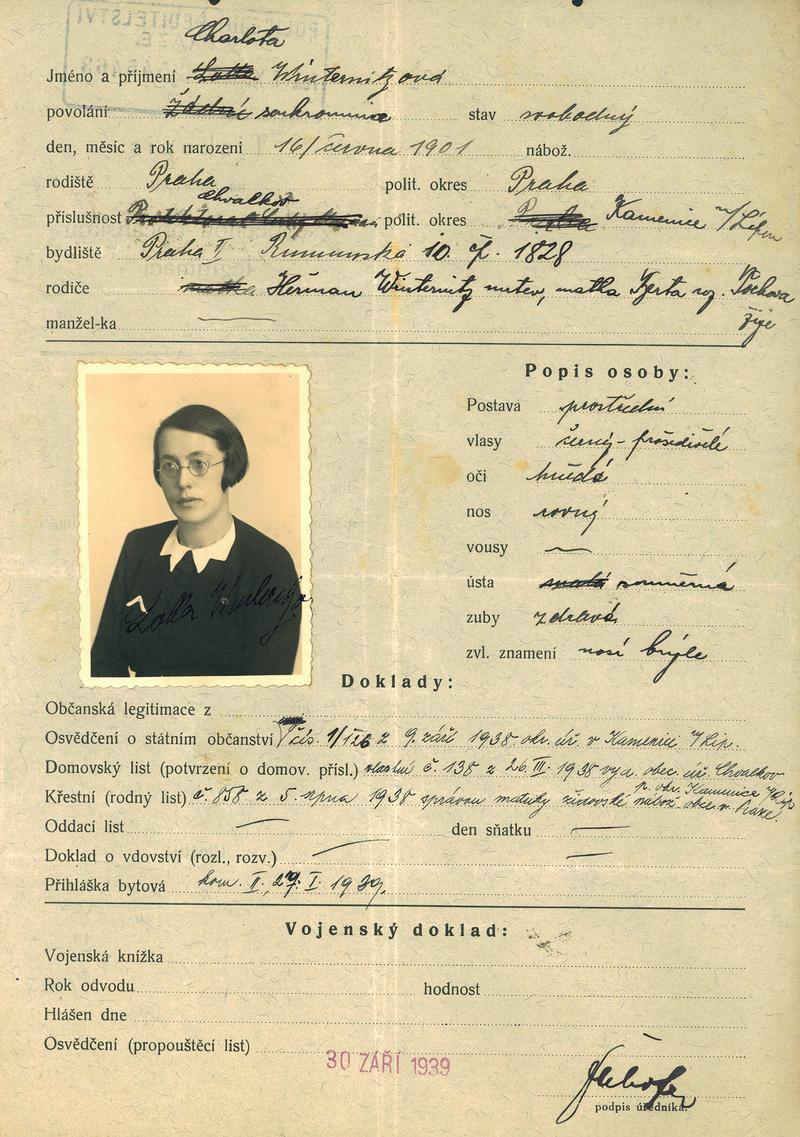 Charlota
Jméno a příjmení Lotta Winternitzová
povolání žádné soukromnice stav svobodný
den, měsíc a rok narození 16/června 1901 nábož.
rodiště Praha polit. okres Praha
Chvalkov
příslušnost polit. okres Praha Kamenice n/Lipou
bydliště Praha II Rumunská 10. čp. 1828
rodiče matka Heřman Winternitz mrtev, matka Berta roz.
žije
manžel-ka
Popis osoby:
Postava prostřední
vlasy černý-prošedivělé
oči hnědé
nos rovný
vousy
ústa malá souměrná
zuby zdravé
zvl. znamení nosí brýle
Lotta Winternitz
Doklady:
Občanská legitimace z
Osvědčení o státním občanství čís. z 9. září 1938 okr. úř. v Kamenici n/Lip.
Domovský list (potvrzení o domov. přísl.) vlastní č. 138 z 26. III. 1938 vyd. obec. úř. Chvalkov
p. okr. Kamenice n/Lip
Křestní (rodný list) č. 858 z 5. srpna 1938 správou matriky židovské nábož. obce v Praze.
Oddací list den sňatku
Doklad o vdovství (rozl., rozv.)
Přihláška bytová kom. II. 27. I. 1939.
Vojenský doklad:
Vojenská knížka
Rok odvodu hodnost
Hlášen dne
Osvědčení (propouštěcí list)
30 ZÁŘÍ 1939
podpis úředníka.